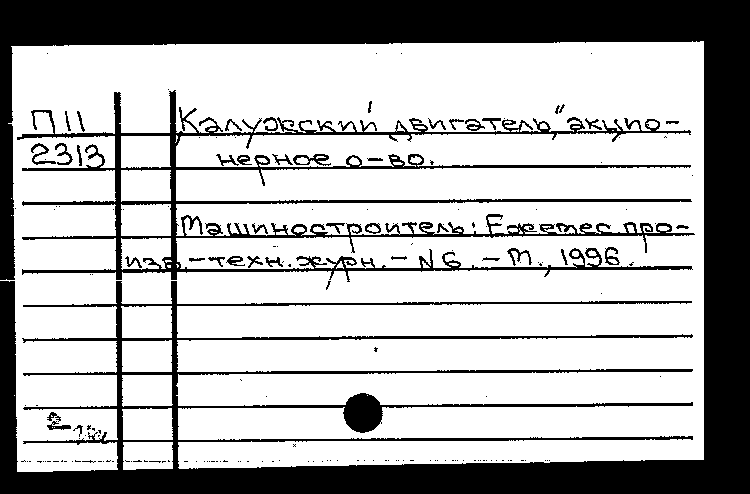 П11
2313
„Калужский двигатель," акцио-
нерное о-во.
Машиностроитель: Ежемес про-
изв.-техн. журн. - N6. - М., 1996.
2